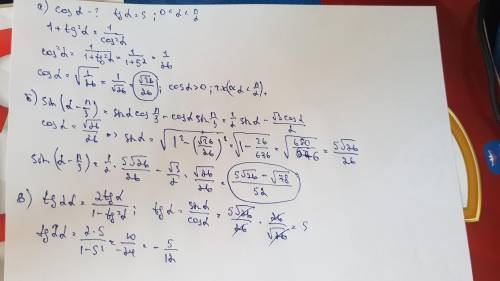 а) cosα - ? tgα = 5 ; 0 < α < π/2
1 + tg²α = 1/cos²α
cos²α = 1/(1+tg²α) = 1/(1+5²) = 1/26
cosα = √(1/26) = 1/√26 = √26/26 ; cosα>0, т.к 0<α < π/2.
б) sin(α - π/3) = sinα cos π/3 - cosα sin π/3 = 1/2 sinα - √3 cosα/2
cosα = √26/26 => sinα = √(1² - (√26/26)²) = √(1 - 26/676) = √(650/676) = 5√26/26
sin(α - π/3) = 1/2 · 5√26/26 - √3/2 · √26/26 = (5√26 - √78)/52
в) tg2α = 2tgα/(1 - tg²α) ; tgα = sinα/cosα = 5√26/26 · 26/√26 = 5
tg2α = 2·5/(1-5²) = 10/-24 = - 5/12